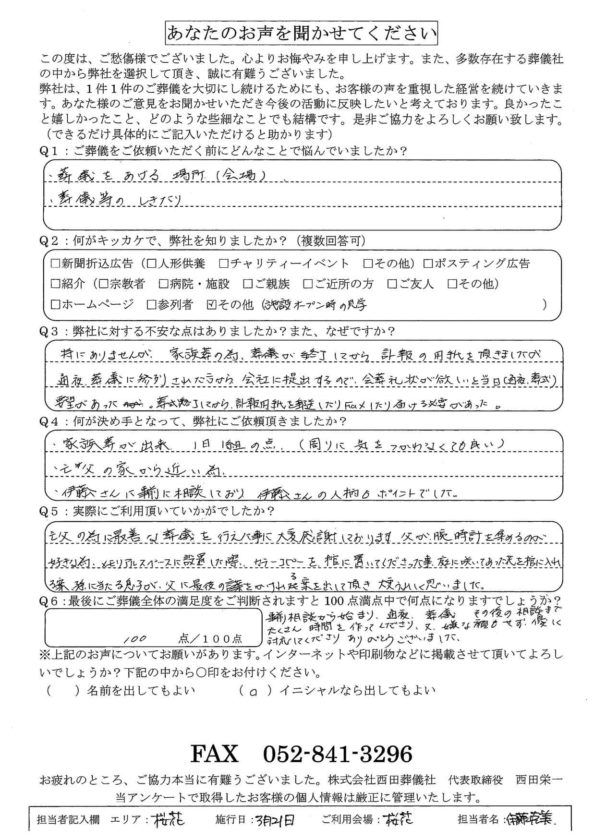 あなたのお声を聞かせてください
この度は、ご愁傷様でございました。心よりお悔やみを申し上げます。また、多数存在する葬儀社
の中から弊社を選択して頂き、誠に有難うございました。
弊社は、1件1件のご葬儀を大切にし続けるためにも、お客様の声を重視した経営を続けていきま
す。あなた様のご意見をお聞かせいただき今後の活動に反映したいと考えております。良かったこ
と嬉しかったこと、どのような些細なことでも結構です。是非ご協力をよろしくお願い致します。
（できるだけ具体的にご記入いただけると助かります）
Q1：ご葬儀をご依頼いただく前にどんなことで悩んでいましたか？
・葬儀をあげる場所（会場）
・葬儀等のしきたり
Q2：何がキッカケで、弊社を知りましたか？（複数回答可）
□新聞折込広告（□人形供養 □チャリティーイベント □その他）□ポスティング広告
□紹介（□宗教者 □病院・施設 □ご親族 □ご近所の方 □ご友人 □その他）
□ホームページ □参列者 ☑その他（施設オープン時の見学 ）
Q3：弊社に対する不安な点はありましたか？また、なぜですか？
特にありませんが、家族葬の為、葬儀が終了してから訃報の用紙を頂きましたが
通夜、葬儀に参列された方から会社に提出するので、会葬礼状が欲しいと当日（通夜、葬式）
要望があった 葬式終了してから、訃報用紙を郵送したりFaxしたり届ける必要があった。
Q4：何が決め手となって、弊社にご依頼頂きましたか？
・家族葬が出来、1日1組の点、（周りに気をつかわなくても良い）
・亡父の家から近い為、
・伊藤さんに事前に相談しており 伊藤さんの人柄もポイントでした。
Q5：実際にご利用頂いていかがでしたか？
亡父の為に最善な葬儀を行えた事に大変感謝しております。父が腕時計を集めるのが
好きな為、メモリアルスペースに設置した際、カラーコピーを、棺に置いてくださった事、庭に咲いてあった花を棺に入れ
る案、孫に当たる息子が、父に最後の議をかけれる案を出して頂き 大変うれしく思いました。
Q6：最後にご葬儀全体の満足度をご判断されますと100点満点中で何点になりますでしょうか？
100 点／100点
事前相談から始まり、通夜、葬儀、その後の相談まで
たくさん時間を作ってくださり、又、嫌な顔もせず、優しく
対応してくださり ありがとうございました。
※上記のお声についてお願いがあります。インターネットや印刷物などに掲載させて頂いてよろし
いでしょうか？下記の中から○印をお付けください。
（ ）名前を出してもよい （○）イニシャルなら出してもよい
FAX 052-841-3296
お疲れのところ、ご協力本当に有難うございました。株式会社西田葬儀社 代表取締役 西田栄一
当アンケートで取得したお客様の個人情報は厳正に管理いたします。
担当者記入欄 エリア：桜花 施行日：3月21日 ご利用会場：桜花 担当者名：伊藤